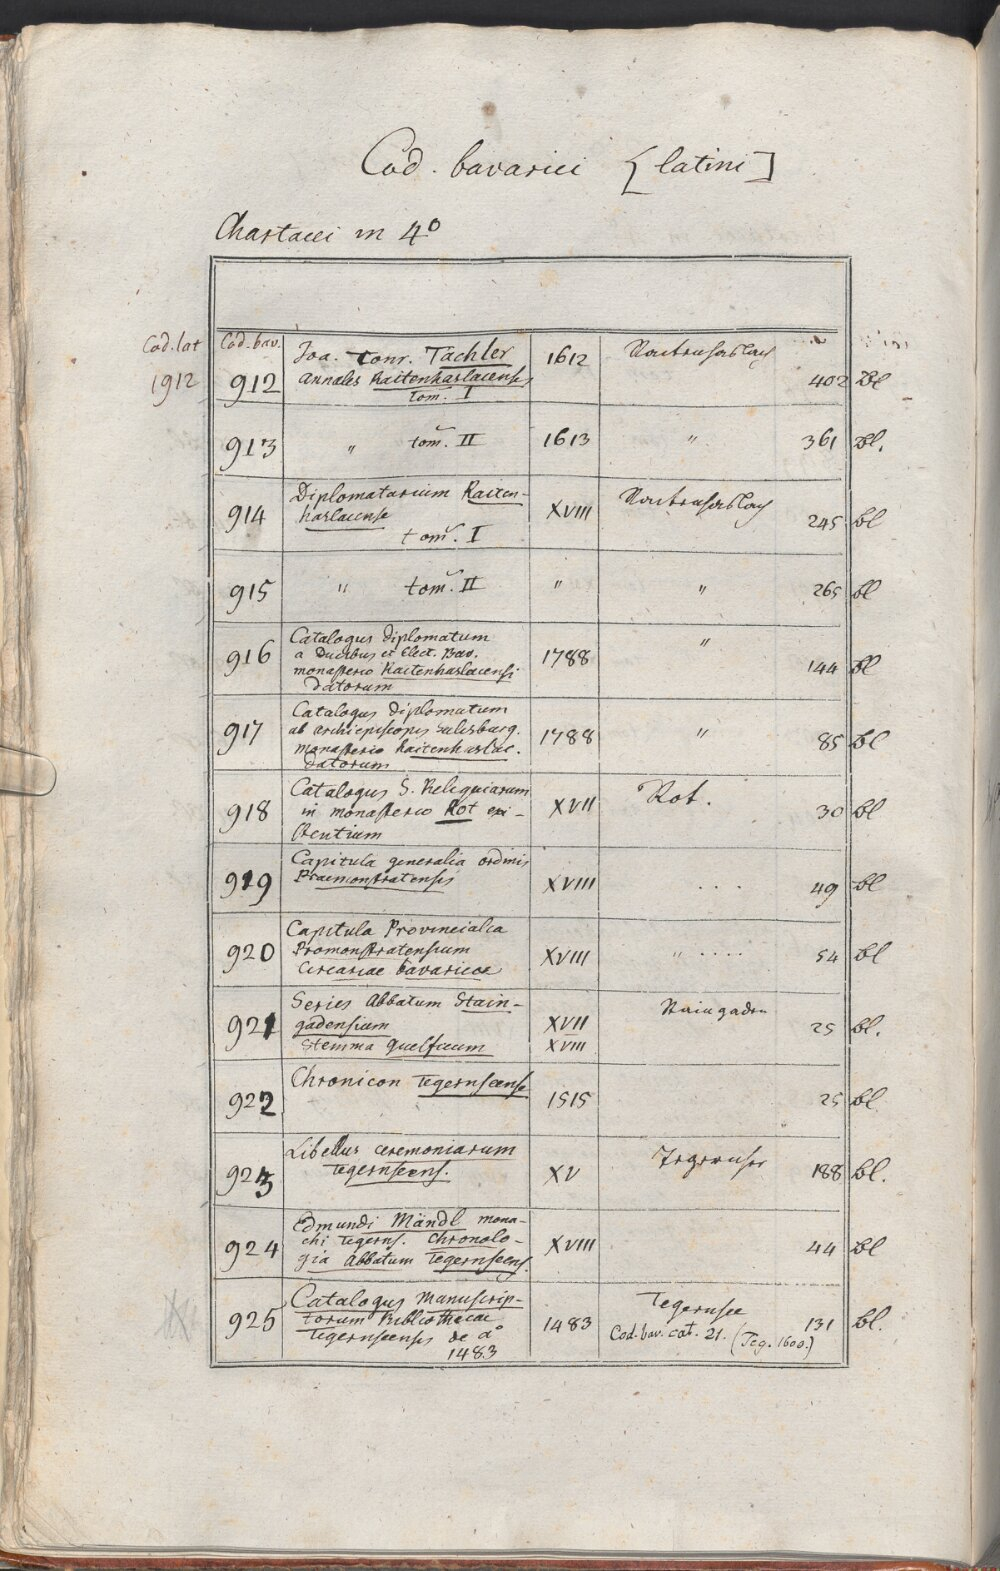 Cod. bavarici [latini]
Chartacei in 4°
Cod. lat
1912
Cod. bav.
912 Joa. Conr. Tachler 1612 Raitenhaslach
annales Raitenhaslacenses 402 Bl
tom. I
913 " tom. II 1613 " 361 Bl.
914 Diplomatarium Raiten- XVIII Raitenhaslach
haslacense 245 bl
tom. I
915 " tom. II " " 265 bl
916 Catalogus diplomatum 1788 " 144 bl
a Ducibus et Elect. Bav.
monasterio Raitenhaslacensi
datorum
917 Catalogus diplomatum 1788 " 85 bl
ab archiepiscopis Salisburg.
monasterio Raitenhaslac.
datorum
918 Catalogus S. Reliquiarum XVII Rot. 30 bl
in monasterio Rot exi-
stentium
919 Capitula generalia ordinis XVIII . . . 49 bl
Praemonstratensis
920 Capitula Provincialia XVIII " . . . . 54 bl
Premonstratensium
Circariae bavaricae
921 Series Abbatum Stain- XVII Staingaden 25 bl.
gadensium
Stemma Guelficum XVIII
922 Chronicon Tegernseense 1515 25 bl
923 Libellus ceremoniarum XV Tegernsee 188 bl.
Tegernseens.
924 Edmundi Mändl mona- XVIII 44 bl
chi Tegerns. Chronolo-
gia Abbatum Tegernseens.
925 Catalogus Manuscrip- 1483 Tegernsee 131 bl.
torum Bibliothecae Cod. bav. cat. 21. (Teg. 1600.)
Tegernseensis de a°
1483